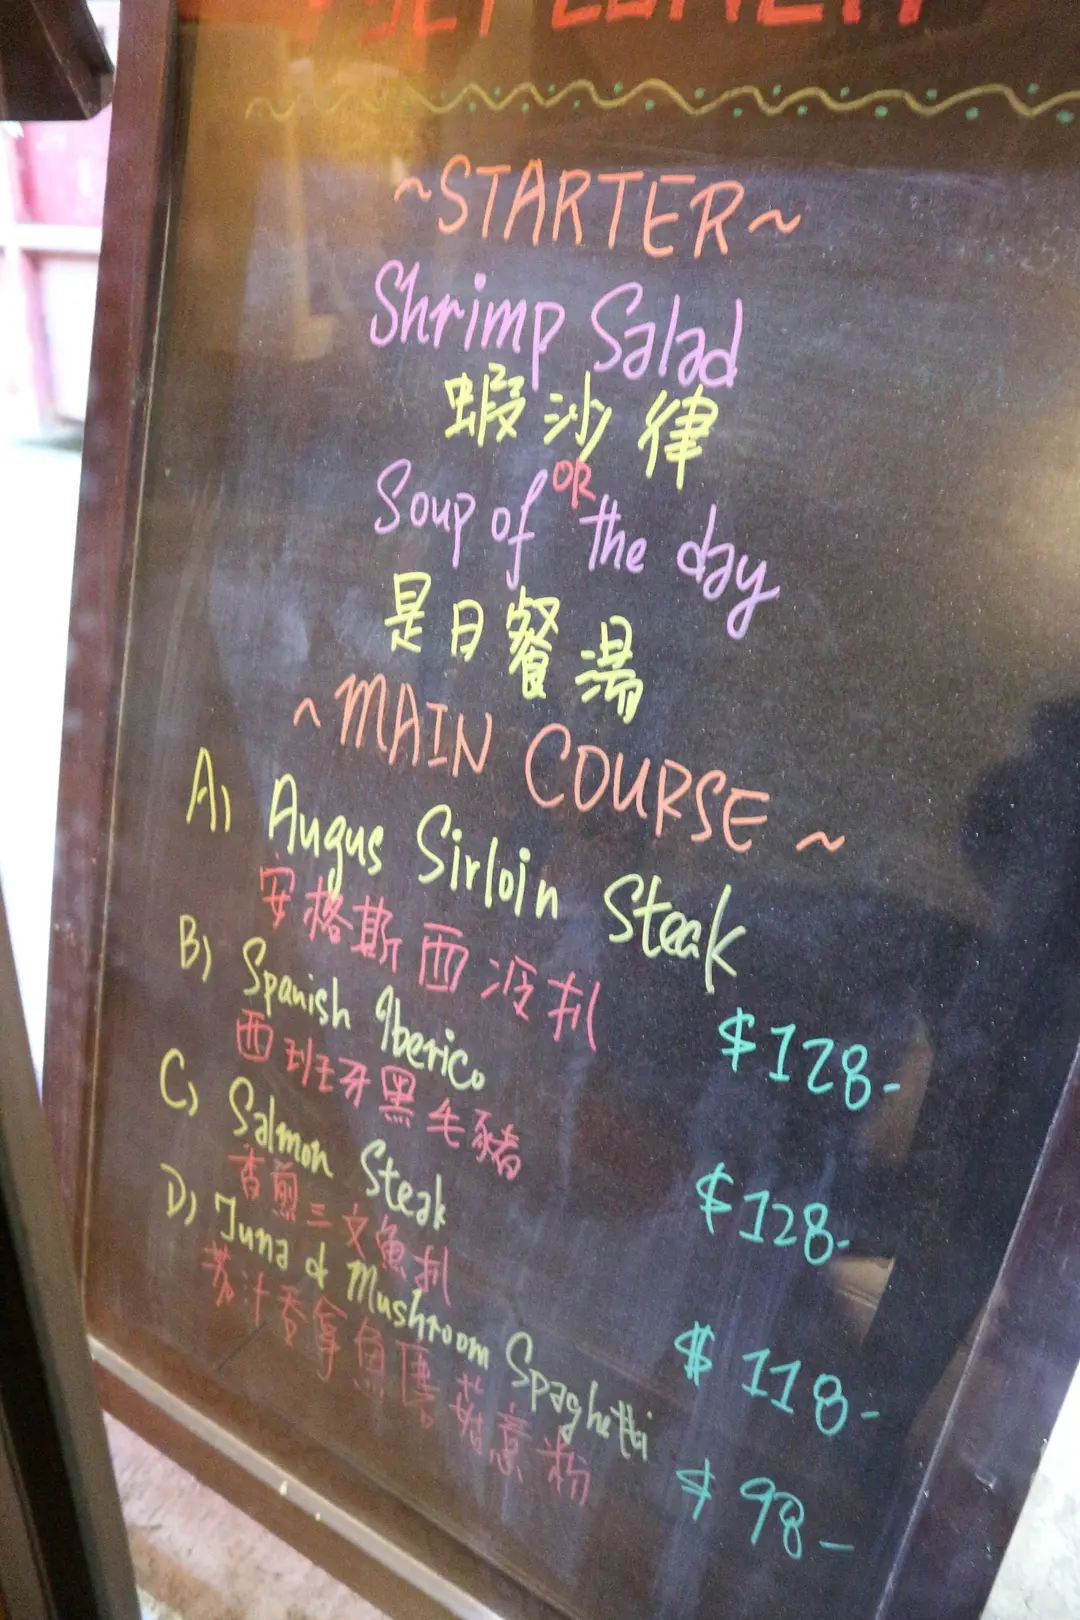 SET LUNCH
~STARTER~
Shrimp Salad
蝦沙律
OR
Soup of the day
是日餐湯
~MAIN COURSE~
A) Augus Sirloin Steak
安格斯西冷扒
$128-
B) Spanish Iberico
西班牙黑毛豬
$128-
C) Salmon Steak
香煎三文魚扒
$118-
D) Tuna & Mushroom Spaghetti
茄汁吞拿魚蘑菇意粉
$98-